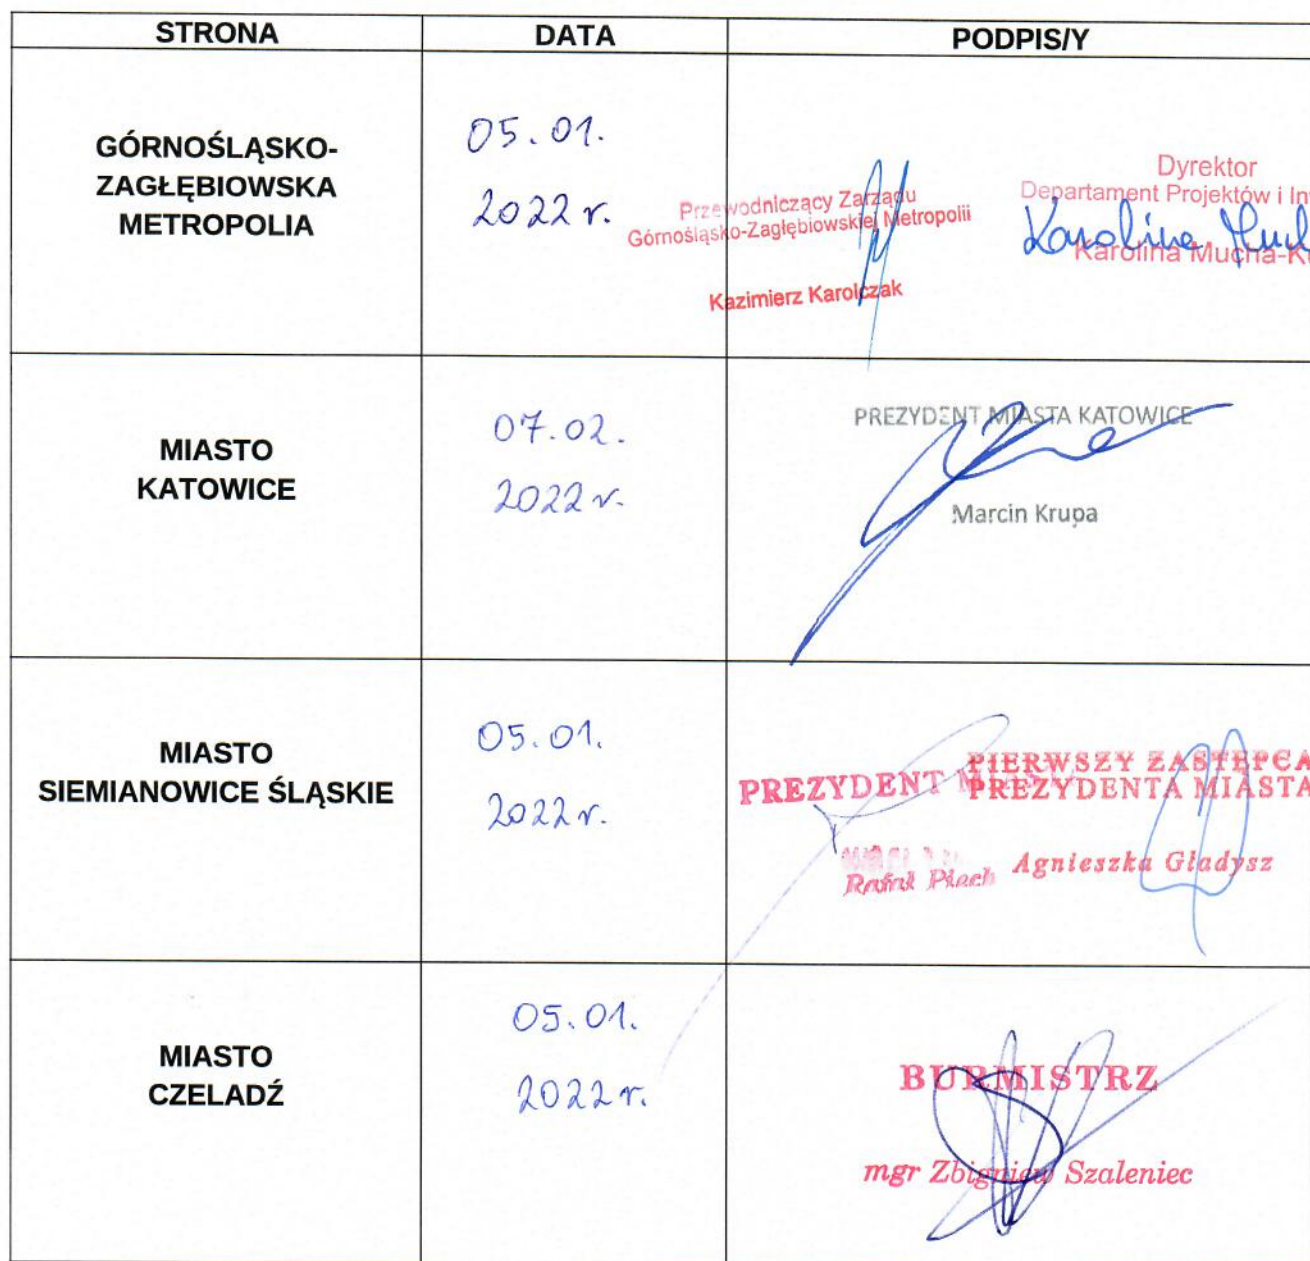 STRONA
DATA
PODPIS/Y
GÓRNOŚLĄSKO-
ZAGŁĘBIOWSKA
METROPOLIA
05.01.
2022 r.
Przewodniczący Zarządu
Górnośląsko-Zagłębiowskiej Metropolii
Kazimierz Karolczak
Dyrektor
Departament Projektów i
Karolina
Karolina Mucha-
MIASTO
KATOWICE
07.02.
2022 r.
PREZYDENT MIASTA KATOWICE
Marcin Krupa
MIASTO
SIEMIANOWICE ŚLĄSKIE
05.01.
2022 r.
PREZYDENT
Rafał Piech
PIERWSZY ZASTĘPCA
PREZYDENTA MIASTA
Agnieszka Gładysz
MIASTO
CZELADŹ
05.01.
2022 r.
BURMISTRZ
mgr Zbigniew Szaleniec